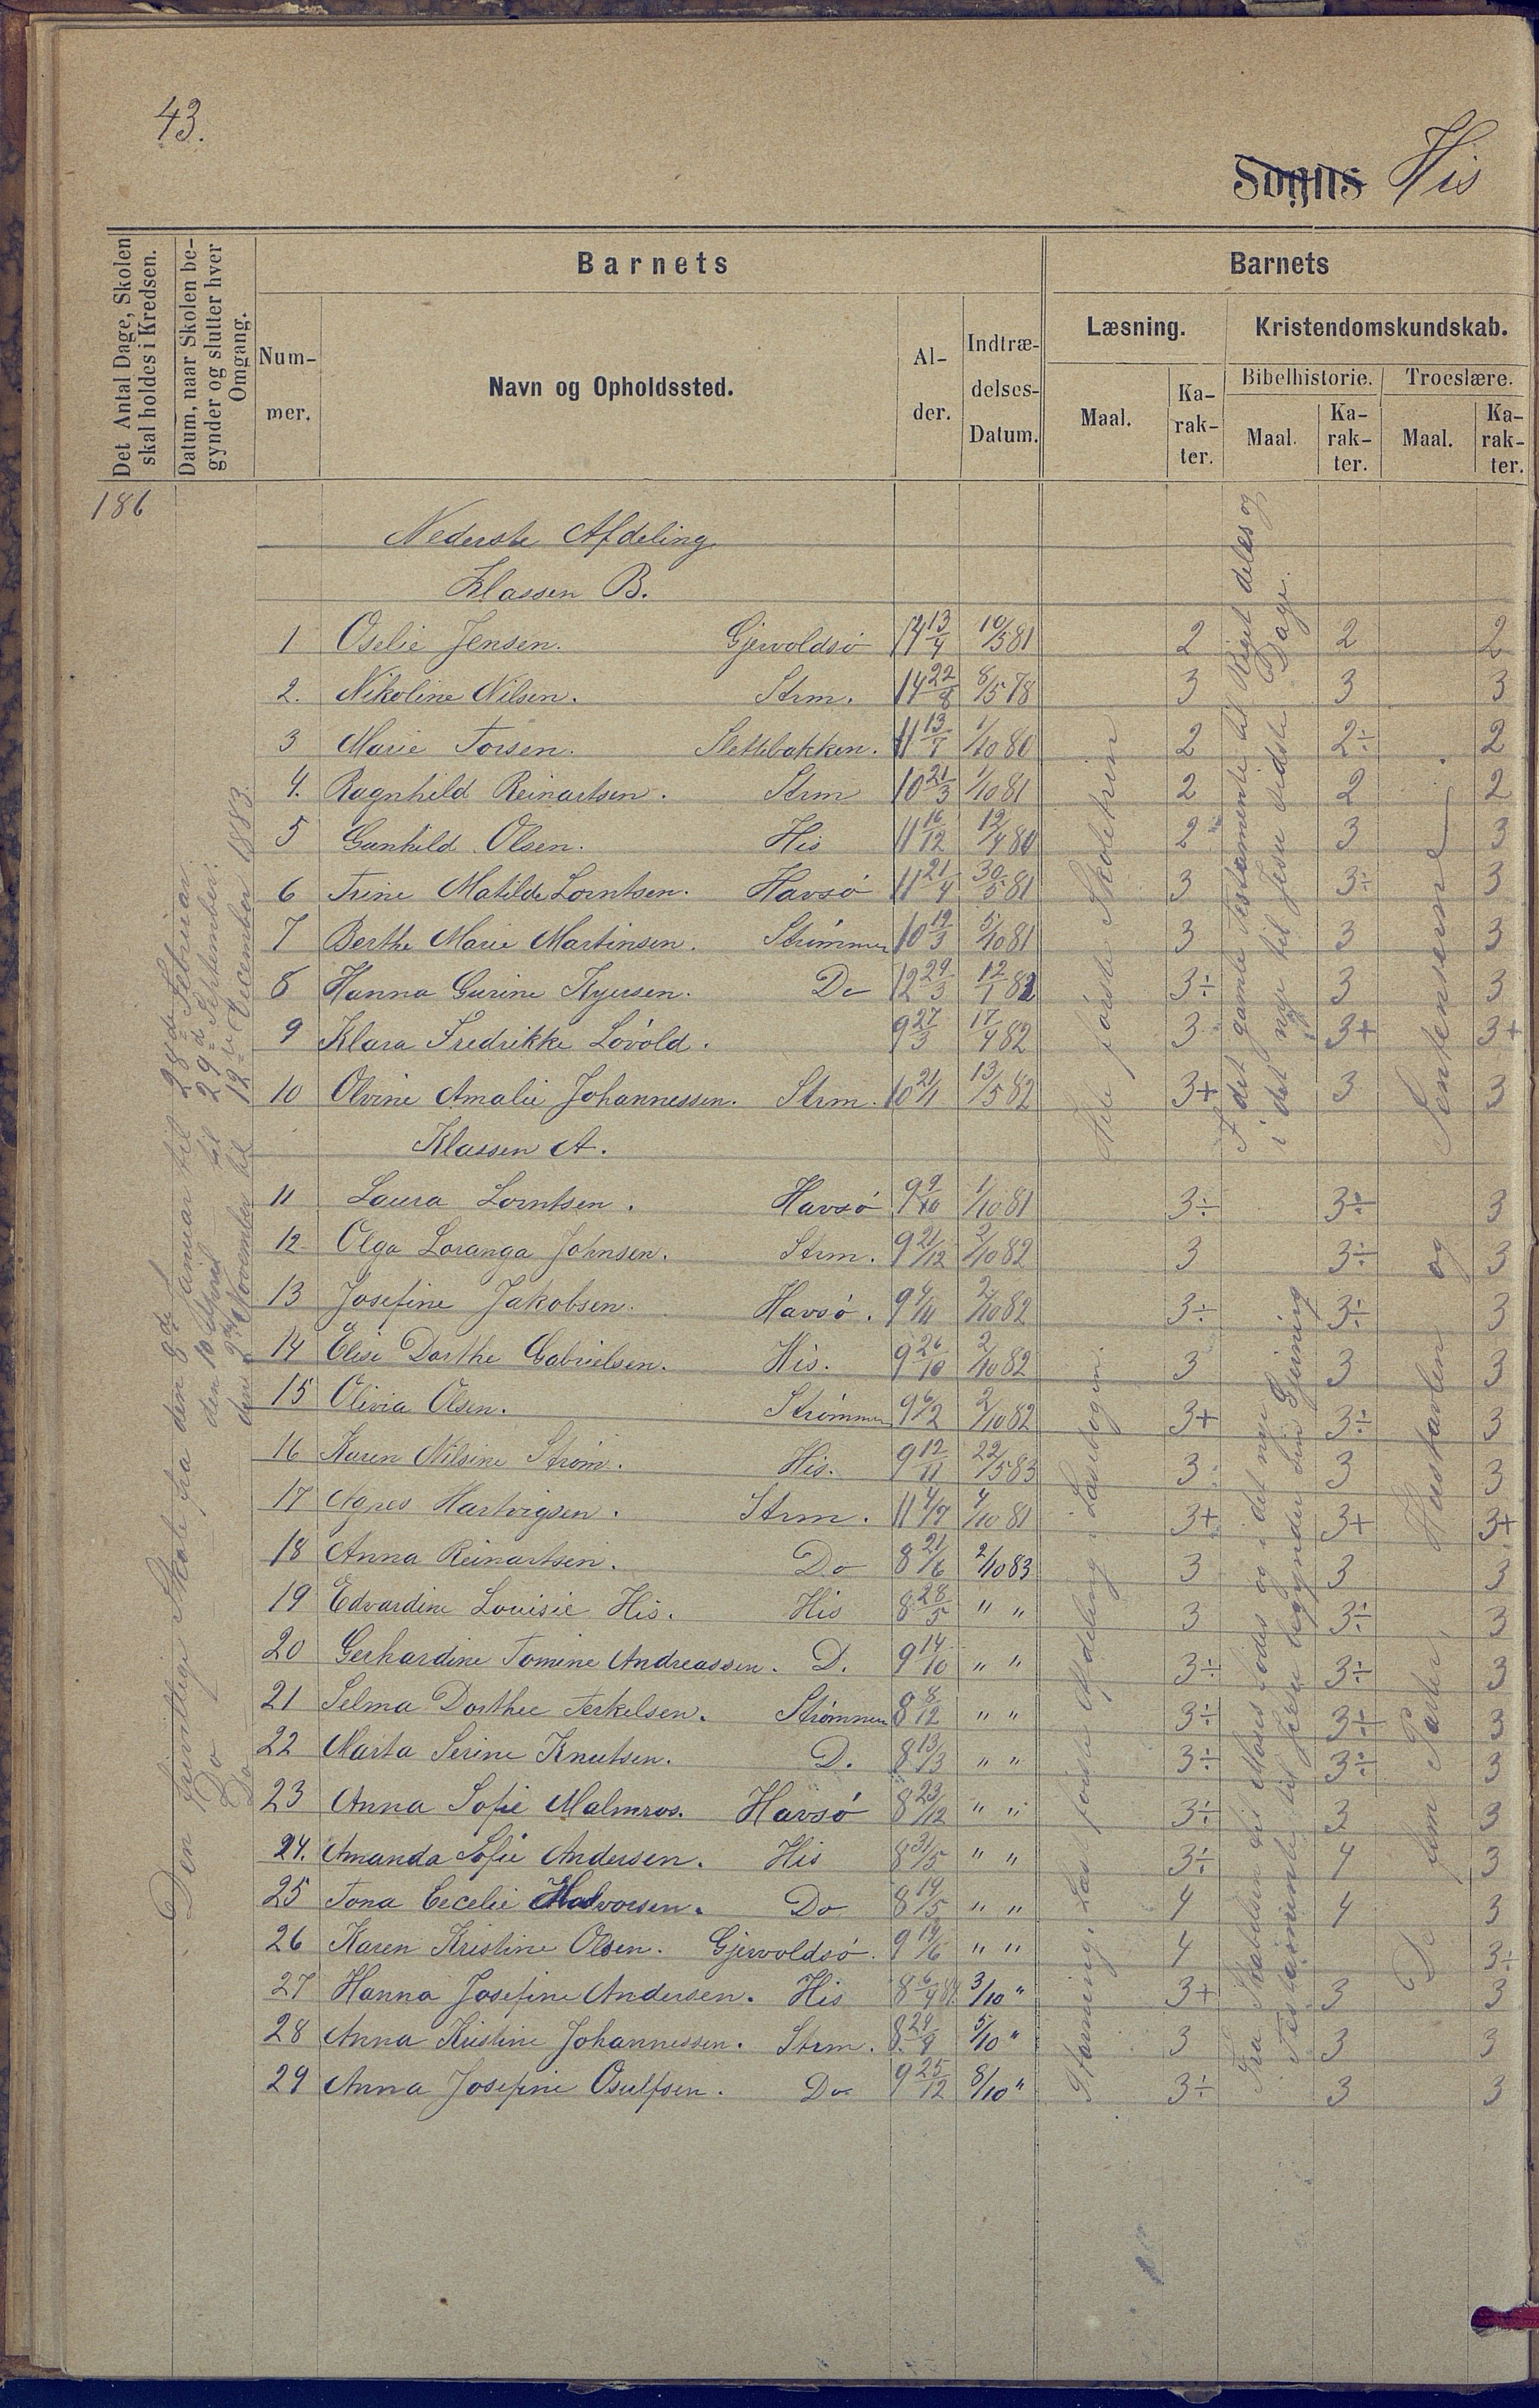 43.
Sogns His
Det Antal Dage, Skolen
skal holdes i Kredsen.
Datum, naar Skolen be-
gynder og slutter hver
Omgang.
Barnets
Barnets
Num-
mer.
Navn og Opholdssted.
Al-
der.
Indtræ-
delses-
Datum.
Læsning.
Kristendomskundskab.
Maal.
Ka-
rak-
ter.
Bibelhistorie.
Troeslære.
Maal.
Ka-
rak-
ter.
Maal.
Ka-
rak-
ter.
186
Den frivillige Skole fra den 8de Januar til 28de Februar.
Do den 10 April til 29de September.
Do den 24 November til 12te December 1883.
Nederste Afdeling
Klassen B.
1 Oselie Jensen. Gjervoldsö 14 13/4 10/5 81 2 2 2
2. Nikoline Nilsen. Strm. 14 22/8 8/5 78 3 3 3
3 Marie Torsen. Slettebakken. 11 13/7 1/10 80 2 2÷ 2
4. Ragnhild Reinartsen. Strm 10 21/3 1/10 81 2 2 2
5 Gunhild Olsen. His 11 16/12 12/4 80 2 3 3
6 Trine Matilde Lorntsen. Havsö 11 21/4 30/5 81 3 3÷ 3
7 Berthe Marie Martinsen. Strömmen 10 19/3 5/10 81 3 3 3
8 Hanna Gurine Kyersen. Do 12 29/3 12/1 82 3÷ 3 3
9 Klara Fredrikke Lövold. 9 27/3 17/4 82 3 3+ 3+
10 Olvine Amalie Johannessen. Strm. 10 21/1 13/5 82 3+ 3 3
Klassen A.
11 Laura Lorntsen. Havsö 9 9/10 1/10 81 3÷ 3÷ 3
12 Olga Loranga Johnsen. Strm. 9 21/12 2/10 82 3 3÷ 3
13 Josefine Jakobsen. Havsö. 9 4/11 2/10 82 3÷ 3÷ 3
14 Elise Dorthe Gabrielsen. His. 9 26/10 2/10 82 3 3 3
15 Olivia Olsen. Strömmen 9 6/2 2/10 82 3+ 3÷ 3
16 Karen Nilsine Ström. His. 9 12/11 22/5 83 3 3 3
17 Agnes Hartvigsen. Strm. 11 4/7 4/10 81 3+ 3+ 3+
18 Anna Reinartsen. Do 8 21/6 2/10 83 3 3 3
19 Edvardine Louisie His. His 8 28/5 " " 3 3÷ 3
20 Gerhardine Tomine Andreassen. D. 9 14/10 " " 3÷ 3÷ 3
21 Selma Dorthee Terkelsen. Strömmen 8 8/12 " " 3÷ 3÷ 3
22 Marta Serine Knutsen. D. 8 13/3 " " 3÷ 3÷ 3
23 Anna Sofie Malmros. Havsö 8 23/12 " " 3÷ 3 3
24. Amanda Sofie Andersen. His 8 31/5 " " 3÷ 4 3
25 Tona Cecelie Halvorsen. Do 8 19/5 " " 4 4 3
26 Karen Kristine Olsen. Gjervoldsö. 9 19/6 " " 4 3÷
27 Hanna Josefine Andersen. His 8 6/4 3/10 " 3+ 3 3
28 Anna Kristine Johannessen. Strm. 8 29/9 5/10 " 3 3 3
29 Anna Josefine Osulfsen. Do 9 25/12 8/10 " 3÷ 3 3
Hele förste Skoletrin
Stavning. Læst förste Afdeling i Læsebogen.
I det gamle Testamente til Riget deles og
i det nye til Jesu sidste Dage.
Fra Skabelsen til Moses födes og i det nye
Testamente til Jesu begynder sin Gjerning
Sentenserne
De fem Parter, Hustavlen og